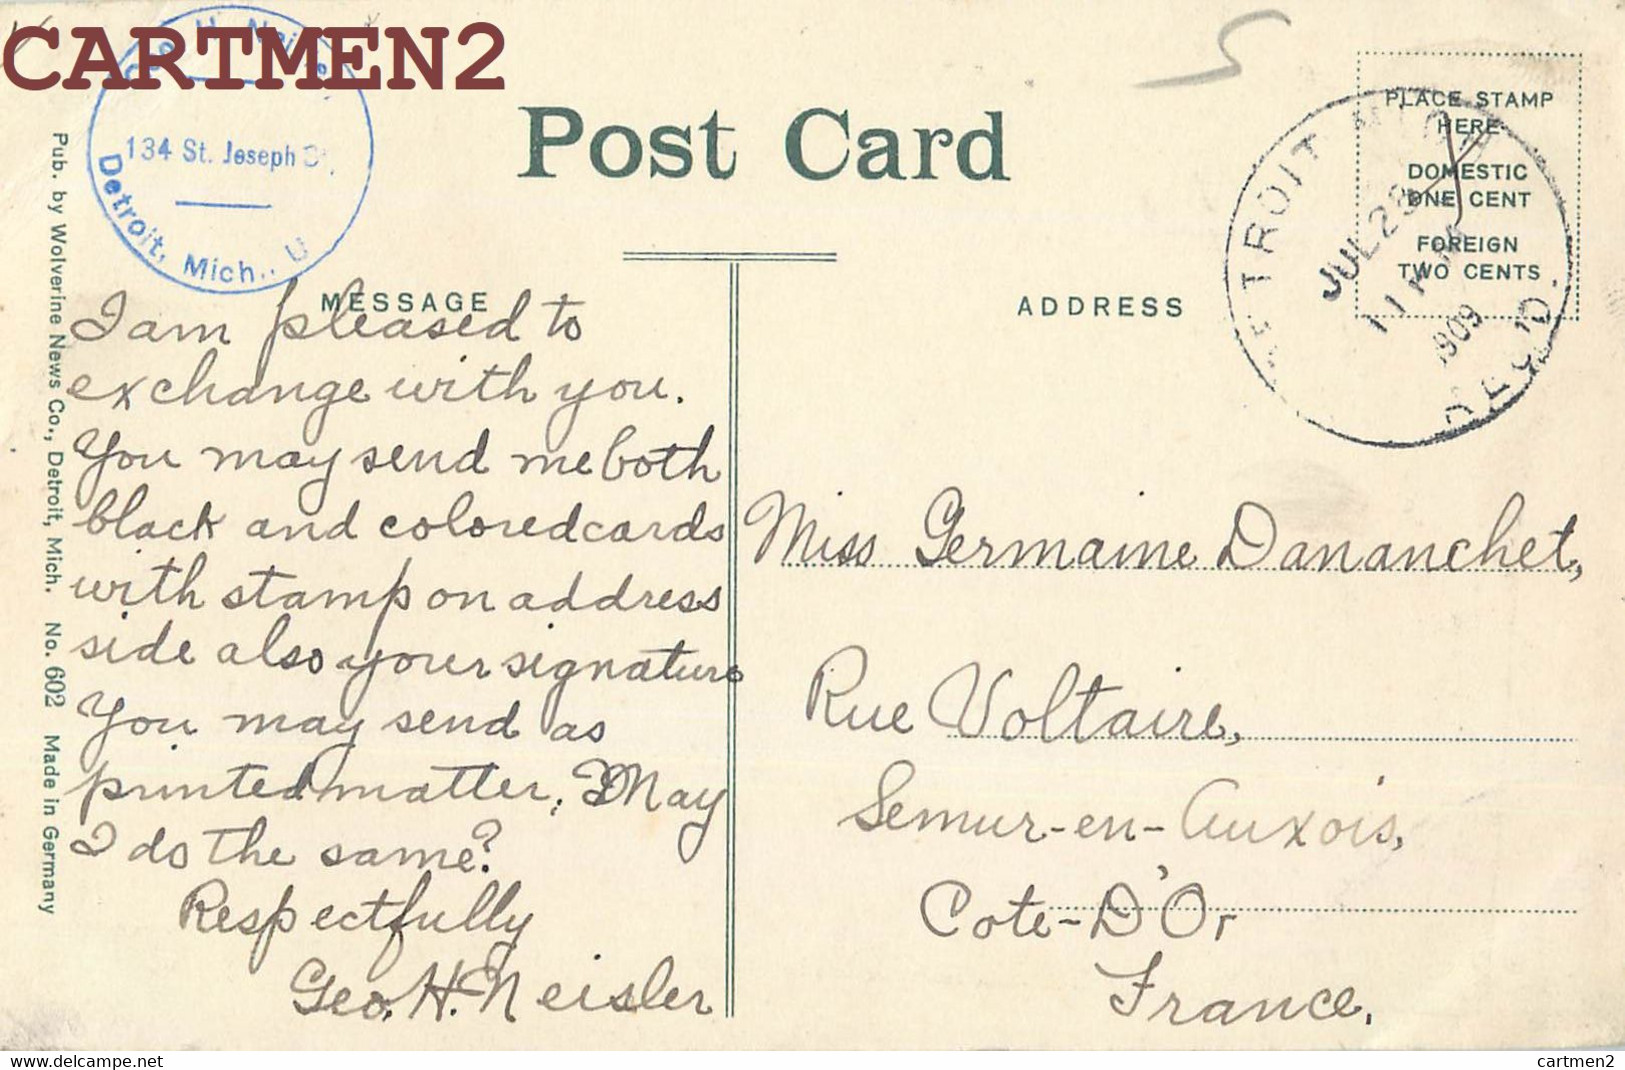 CARTMEN2
Geo. H. Neisler
134 St. Joseph St.,
Detroit, Mich., U
Post Card
PLACE STAMP
HERE
DOMESTIC
ONE CENT
FOREIGN
TWO CENTS
DETROIT, MICH.
JUL 28
11 PM
1909
REC'D.
MESSAGE
ADDRESS
I am pleased to
exchange with you.
You may send me both
black and colored cards
with stamp on address
side also your signature
You may send as
printed matter; May
I do the same?
Respectfully
Geo. H. Neisler
Miss Germaine Dananchet,
Rue Voltaire,
Semur-en-Auxois,
Cote-D'Or
France.
Pub. by Wolverine News Co., Detroit, Mich. No. 602 Made in Germany
cartmen2.com
cartmen2